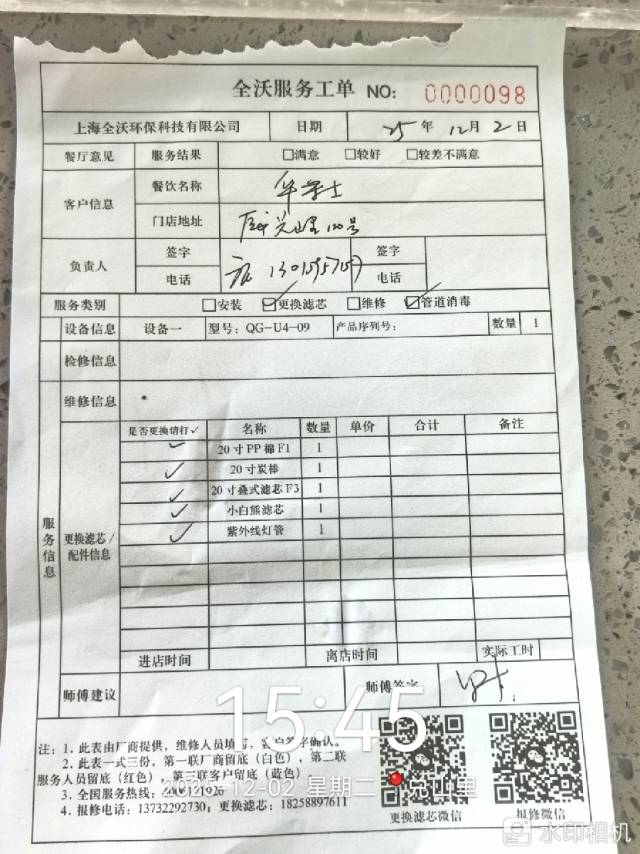 全沃服务工单 NO: 0000098
上海全沃环保科技有限公司 日期 25年 12月 2日
餐厅意见 服务结果 □满意 □较好 □较差不满意
客户信息 餐饮名称 华莱士
门店地址
负责人 签字 签字
电话 电话
服务类别 □安装 ☑更换滤芯 □维修 ☑管道消毒
设备信息 设备一 型号: QG-U4-09 产品序列号: 数量 1
检修信息
维修信息
服务信息 更换滤芯/配件信息
是否更换请打✓ 名称 数量 单价 合计 备注
✓ 20寸PP棉F1 1
✓ 20寸炭棒 1
✓ 20寸叠式滤芯F3 1
✓ 小白熊滤芯 1
✓ 紫外线灯管 1
进店时间 离店时间 实际工时
师傅建议 师傅签字
15:45
注: 1. 此表由厂商提供,维修人员填写,客户签字确认。
2. 此表一式三份,第一联厂商留底(白色),第二联
服务人员留底(红色),第三联客户留底(蓝色)
3. 全国服务热线:
4. 报修电话: 13732292730; 更换滤芯: 18258897611
2025-12-02 星期二
更换滤芯微信 报修微信
水印相机